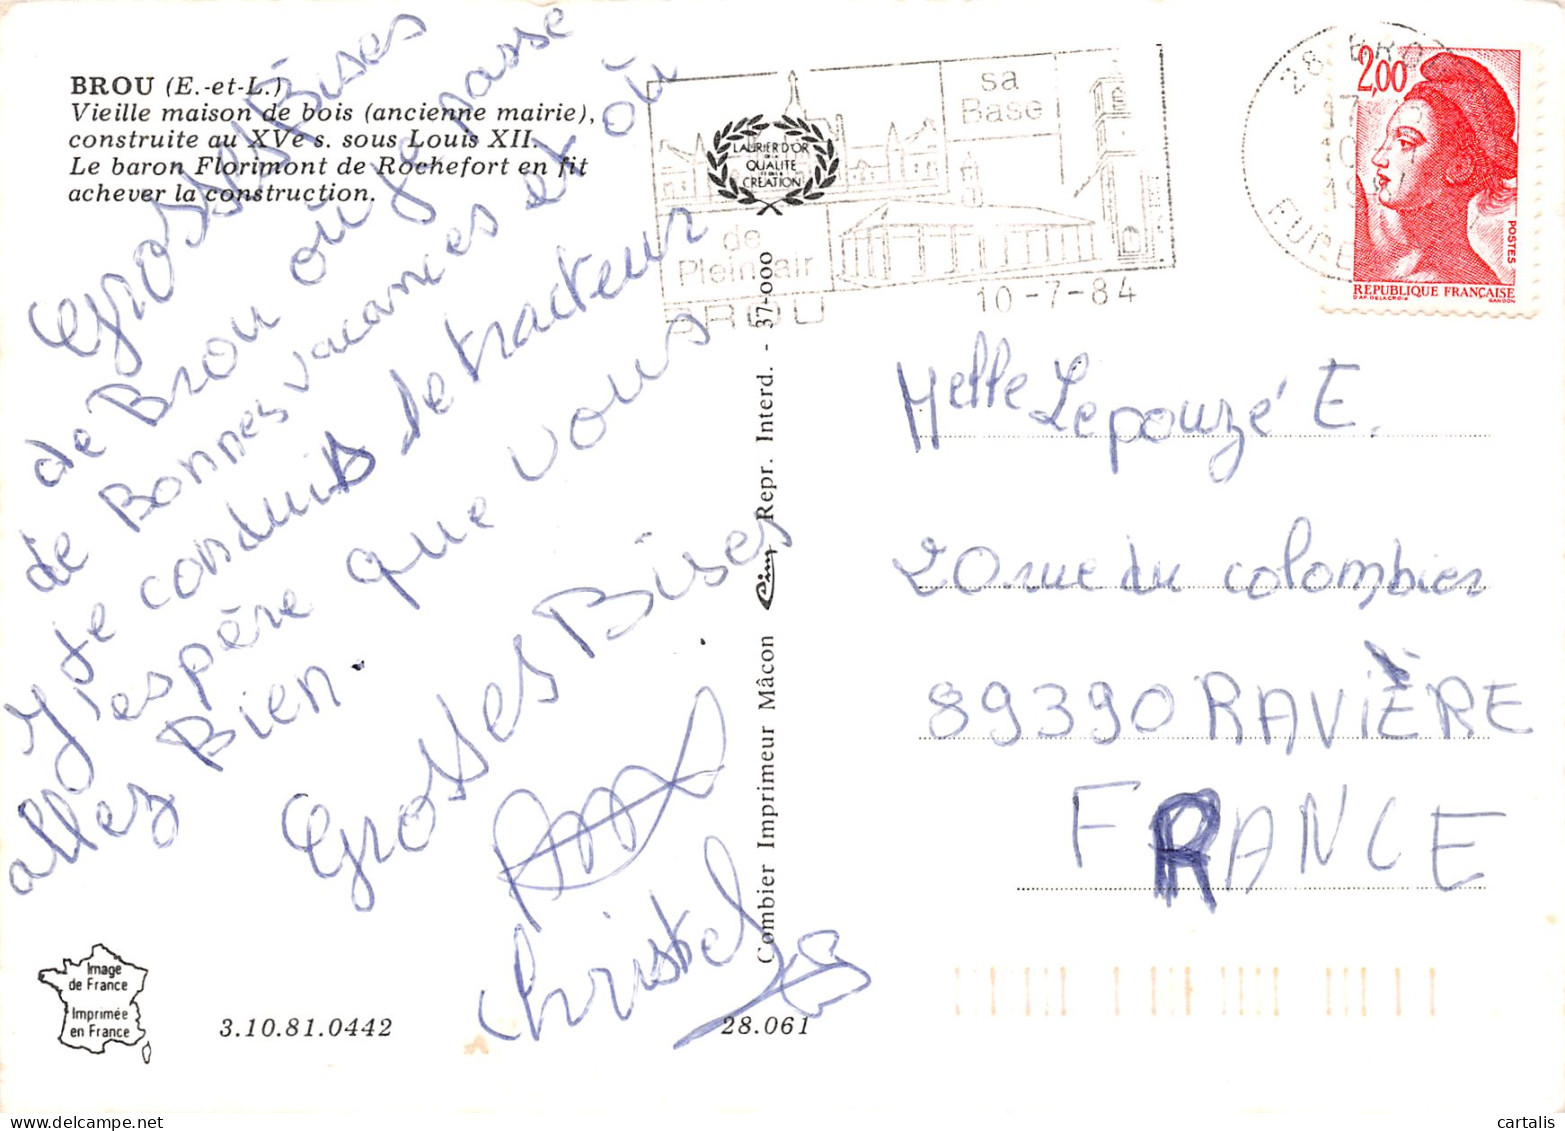 BROU (E.-et-L.)
Vieille maison de bois (ancienne mairie),
construite au XVe s. sous Louis XII.
Le baron Florimont de Rochefort en fit
achever la construction.
Grosses Bises
de Brou où je passe
de Bonnes vacances et où
J'te conduis le tracteur
J'espère que vous
allez Bien.
Grosses Bises
Christel
Image
de France
Imprimée
en France
3.10.81.0442
28.061
Combier Imprimeur Mâcon Cim Repr. Interd. - 37-000
LAURIER D'OR
DE LA
QUALITÉ
ET DE LA
CRÉATION
sa
Base
de
Plein air
BROU
10-7-84
28 BRO
17
10
19
EURE
2,00
POSTES
REPUBLIQUE FRANÇAISE
D'AP. DELACROIX
GANDON
Melle Lepouzé E.
20 rue du colombier
89390 RAVIÈRE
FRANCE
www.cartalis.com
cartalis